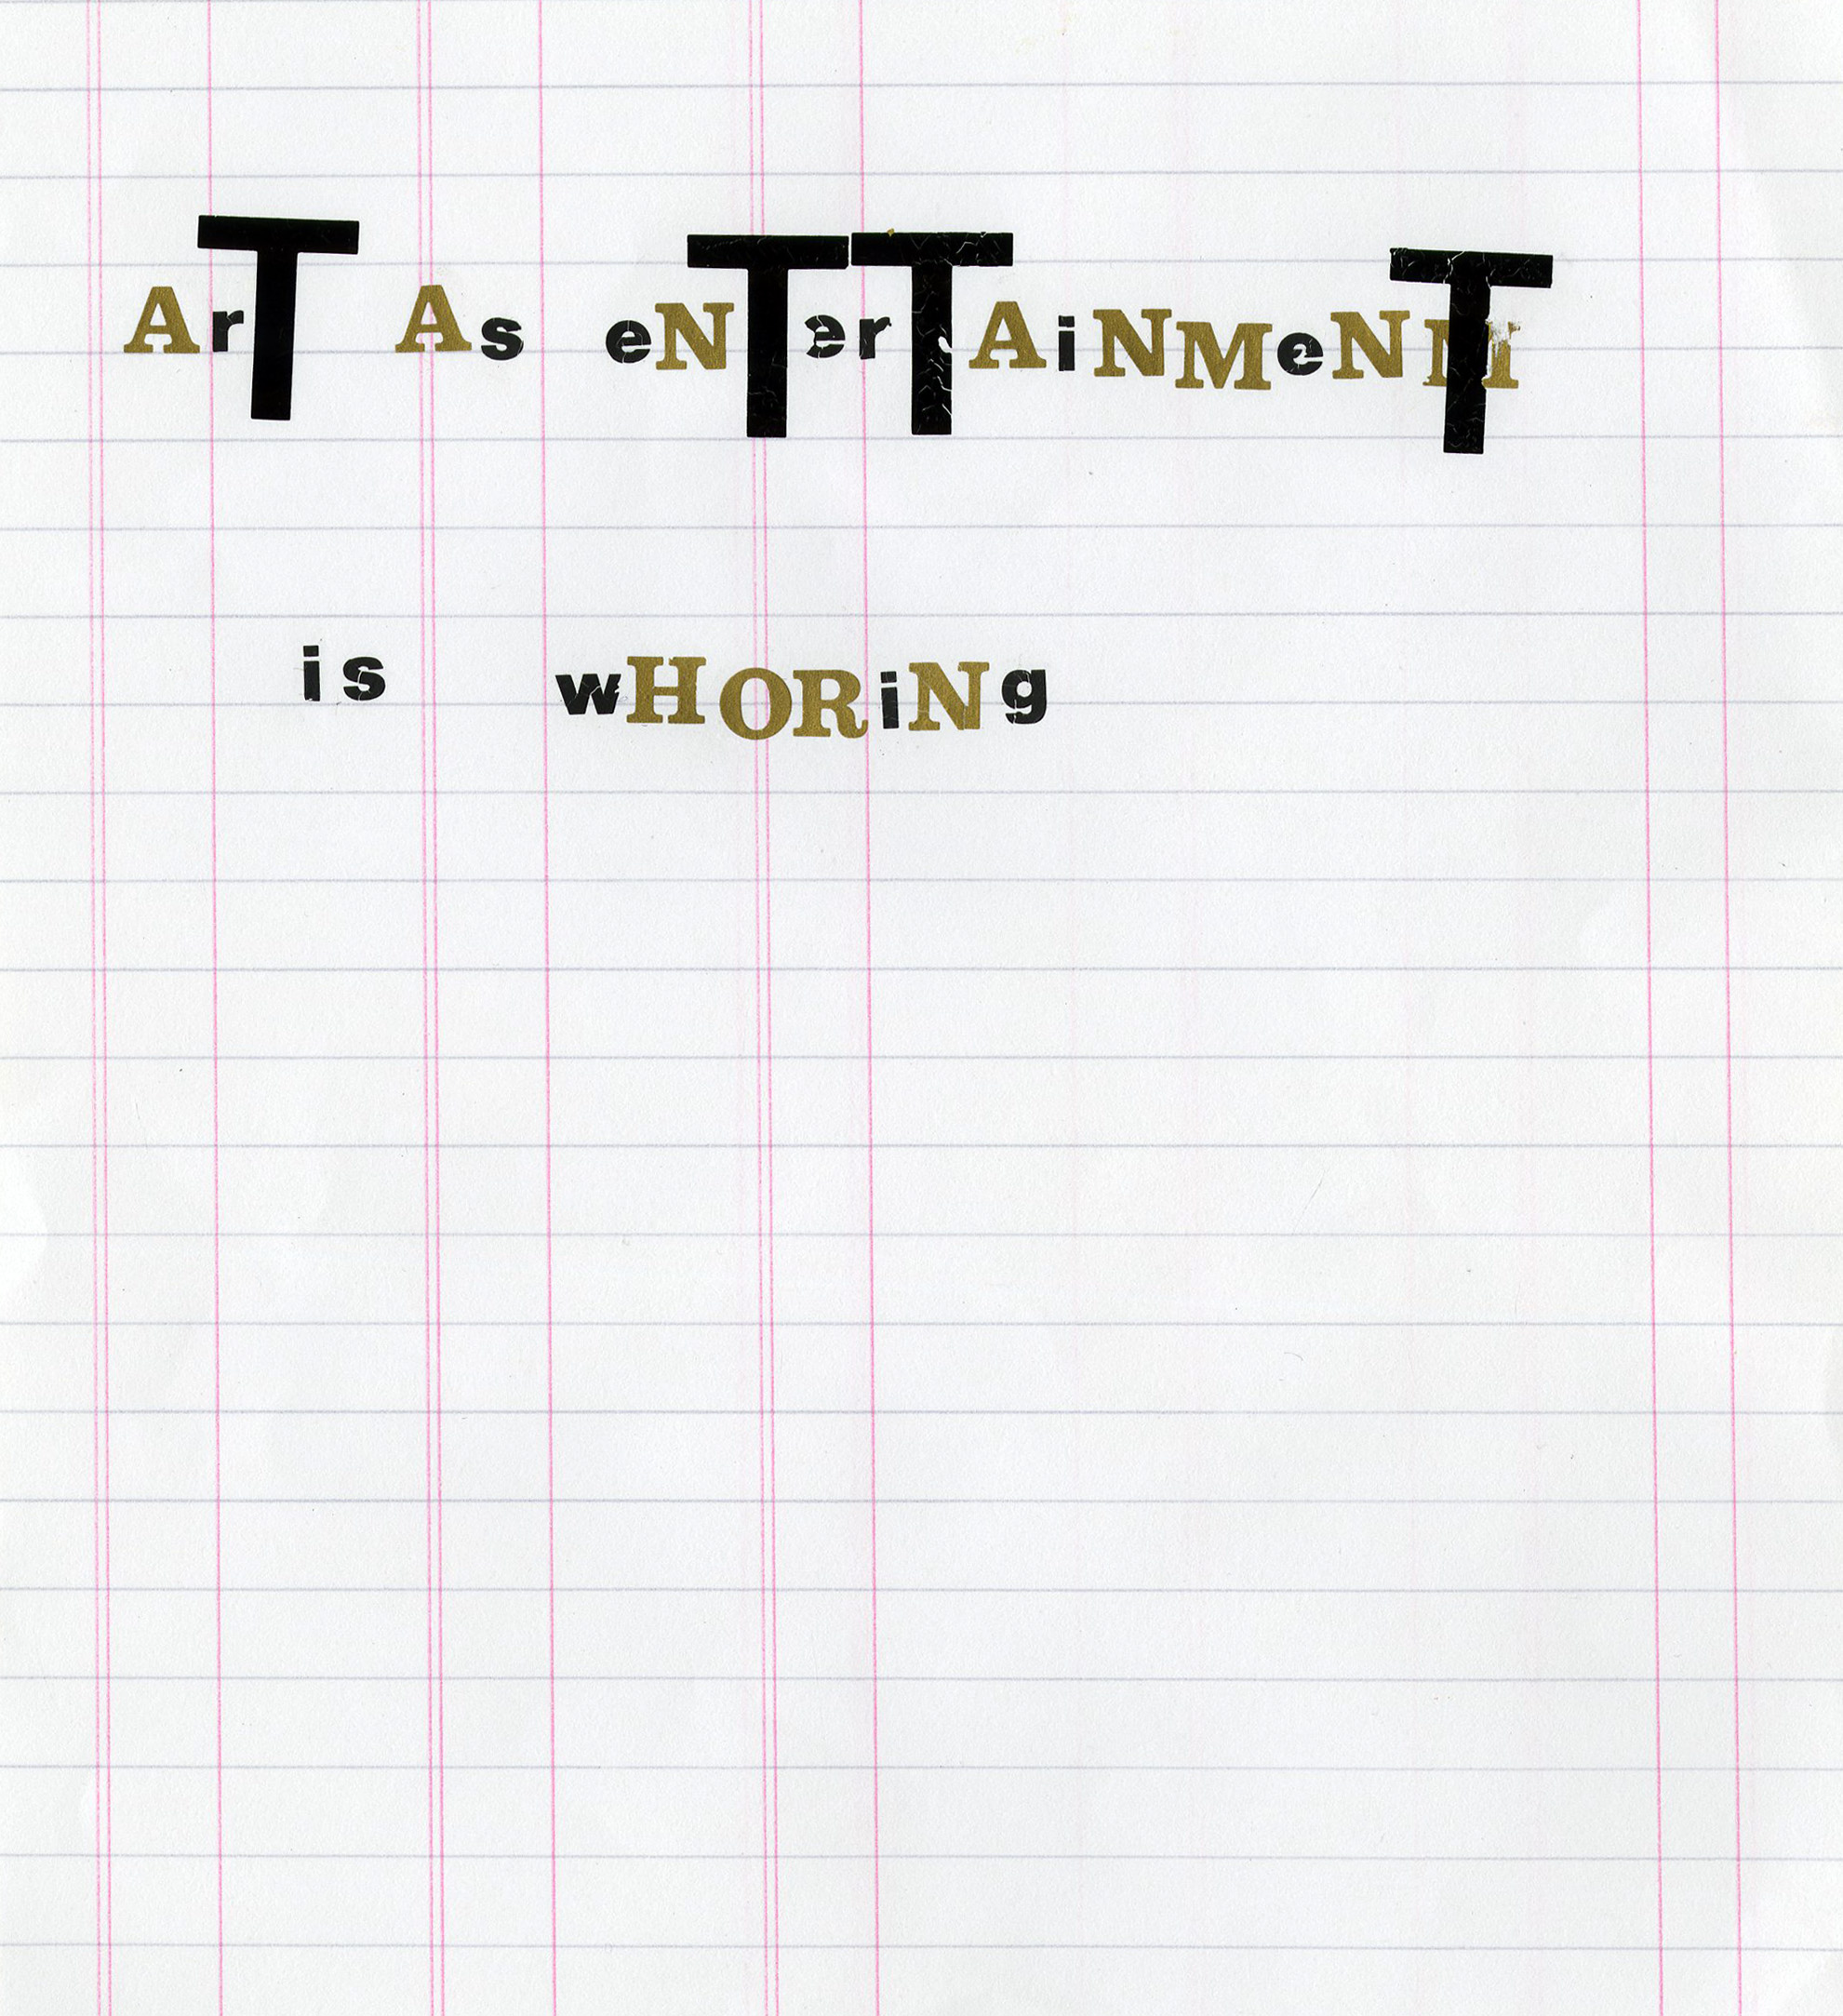 ArT As eNTerTAiNMeNT
is wHORiNg